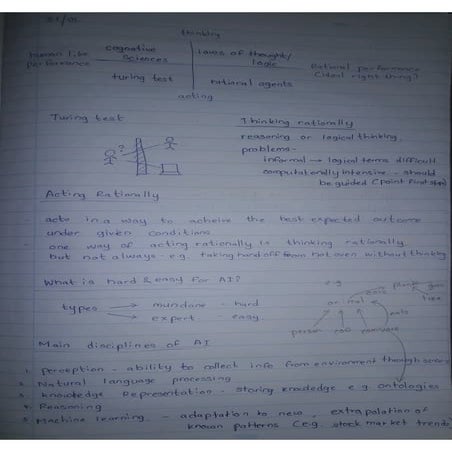 thinking
human like
performance
cognative
sciences
laws of thought/
logic
Rational performance
(ideal right thing)
turing test
rational agents
acting
Turing test
?
Thinking rationally
reasoning or logical thinking,
problems -
informal → logical terms difficult
computationally intensive - should
be guided (point first step)
Acting Rationally
- acts in a way to acheive the best expected outcome
under given conditions
- one way of acting rationally is thinking rationally
but not always - e.g. taking hand off from hot oven without thinking
What is hard & easy for AI?
types → mundane - hard
→ expert - easy
e.g
eats plants
animal
eats
person
carnivore
Main disciplines of AI
1. perception - ability to collect info from environment through
2. Natural language processing
3. Knowledge Representation - storing knowledge e.g. ontologies
4. Reasoning
5. Machine learning - adaptation to new, extrapolation of
known patterns (e.g. stock market trends)